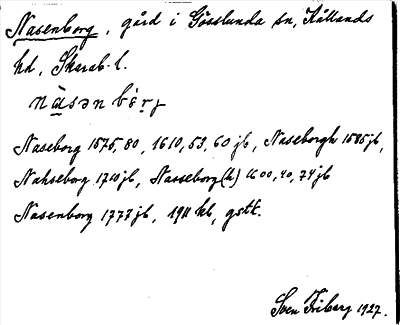 Nasenborg, gård i Gösslunda sn, Kållands
hd, Skarab. l.
nàsən bèrj
Naseborg 1575, 80, 1610, 53, 60 jb, Naseborgh 1585 jb,
Nahseborg 1710 jb, Nasseborg(h) 1600, 40, 74 jb
Nasenborg 1777 jb, 1911 kb, gstk.
Sven Friberg 1927.